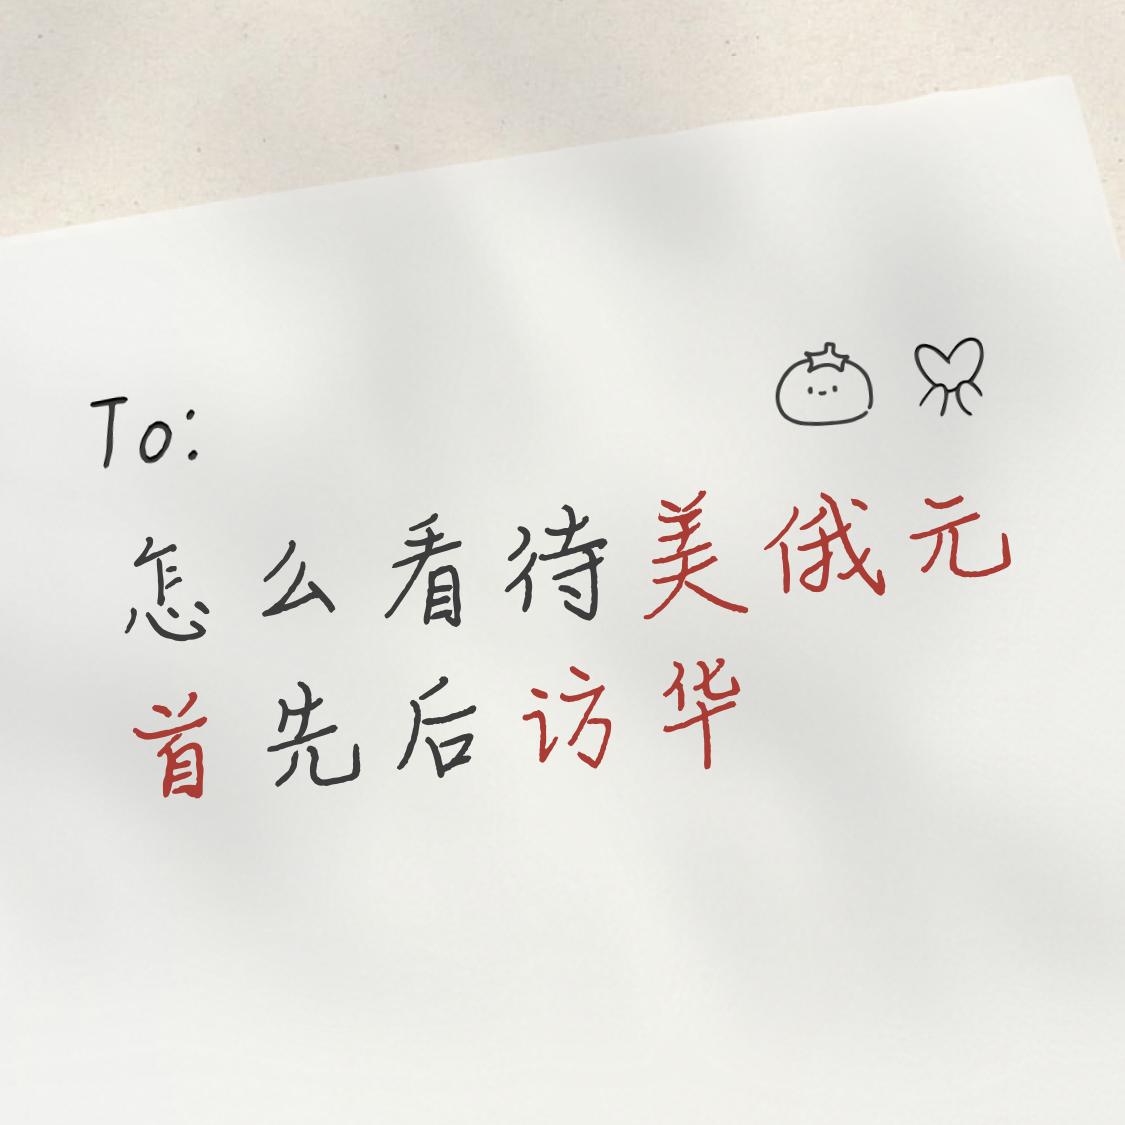 To:
怎么看待美俄元
首先后访华